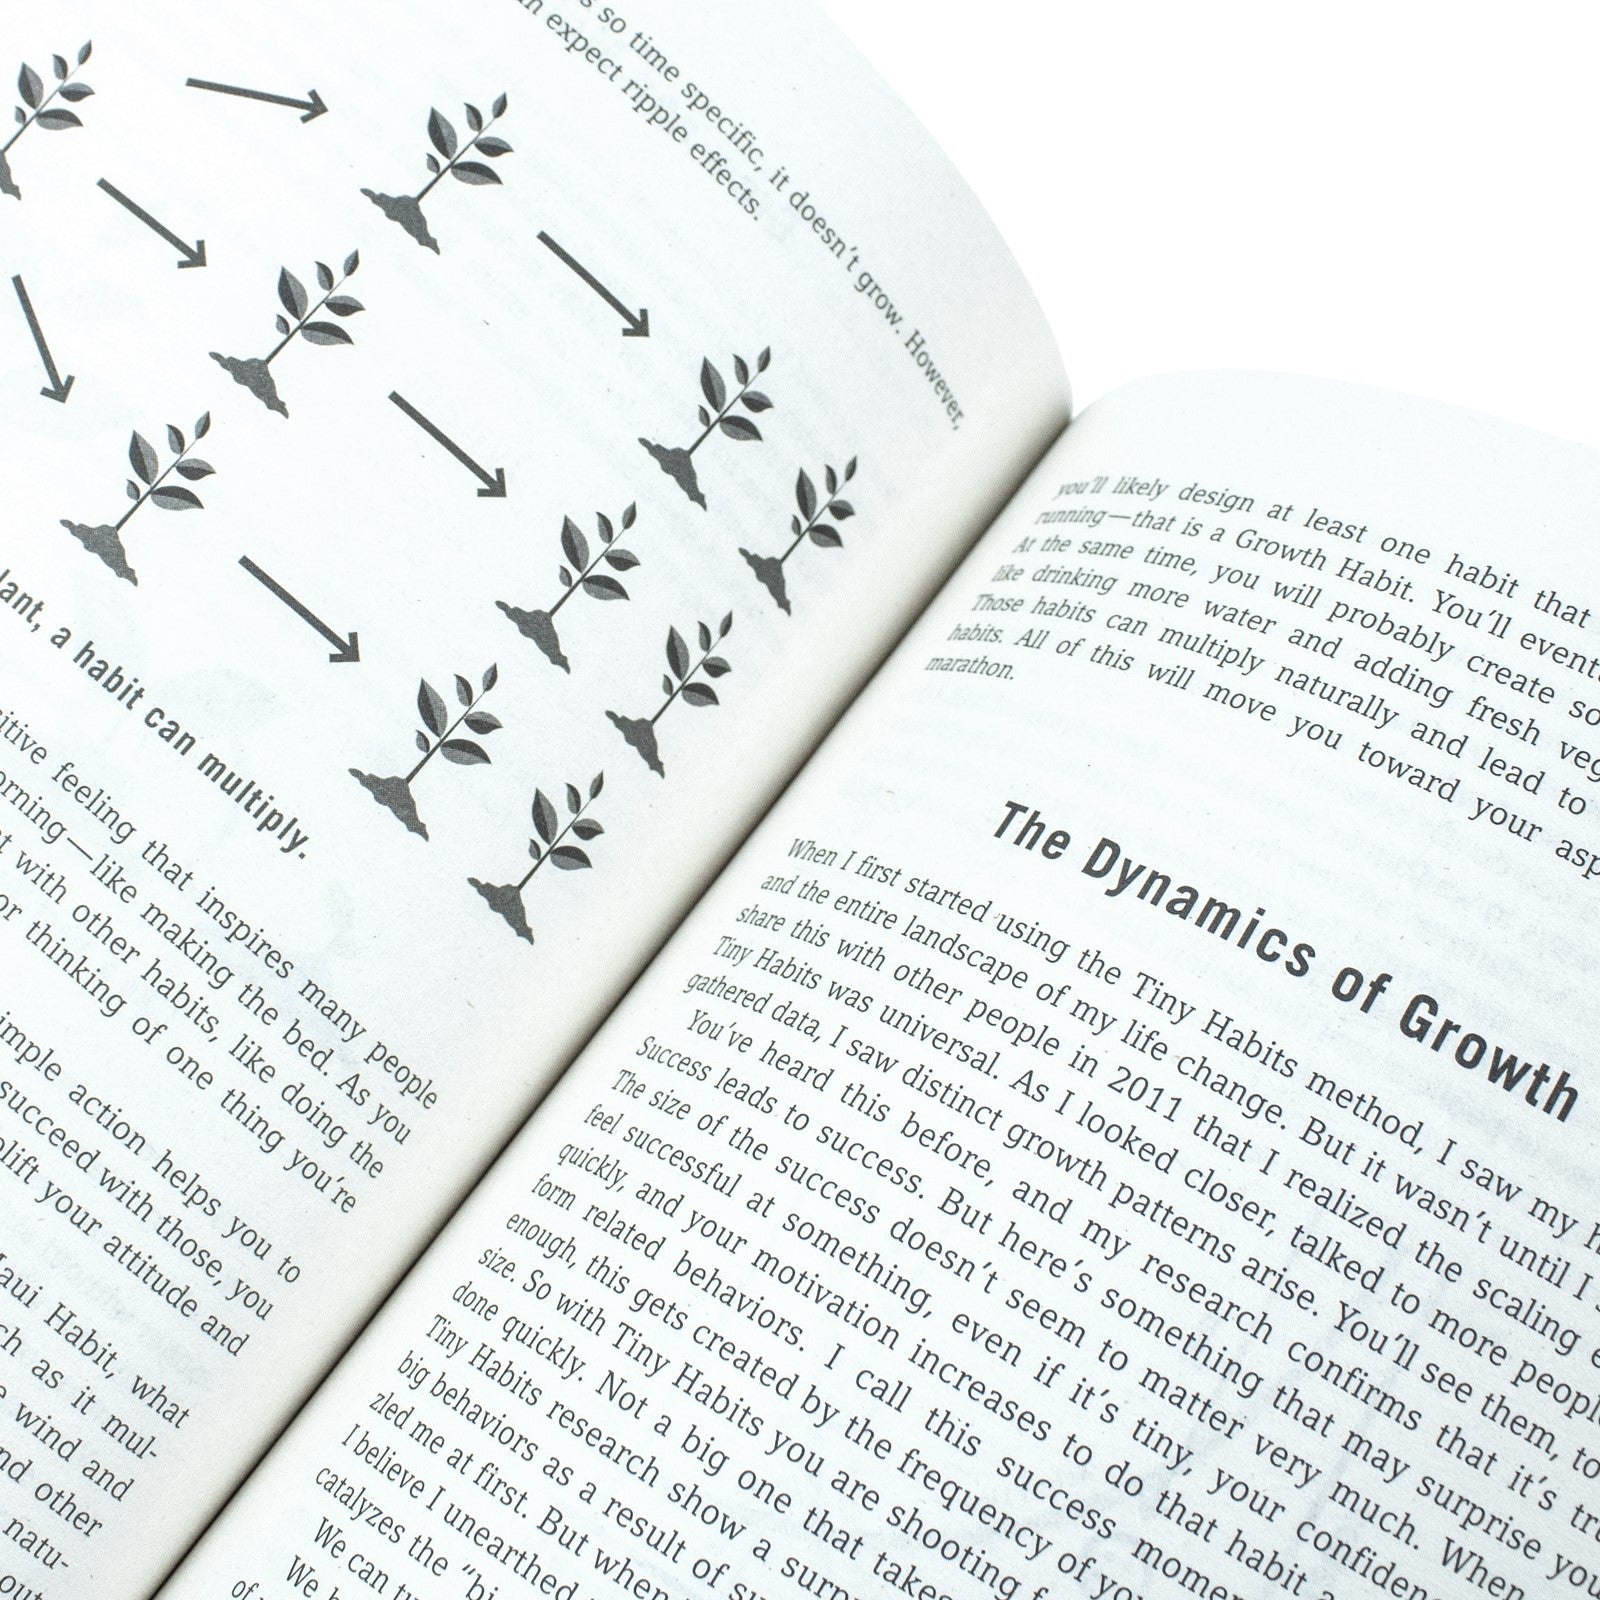 so time specific, it doesn't grow. However,
expect ripple effects.
a habit can multiply.
feeling that inspires many people
like making the bed. As you
with other habits, like doing the
or thinking of one thing you're
action helps you to
succeed with those, you
your attitude and
Habit, what
as it mul-
wind and
other
natu-
you'll likely design at least one habit that
running—that is a Growth Habit. You'll
At the same time, you will probably create
like drinking more water and adding fresh
Those habits can multiply naturally and lead to
habits. All of this will move you toward your
marathon.
The Dynamics of Growth
When I first started using the Tiny Habits method, I saw my
and the entire landscape of my life change. But it wasn't until I
share this with other people in 2011 that I realized the scaling
Tiny Habits was universal. As I looked closer, talked to more
gathered data, I saw distinct growth patterns arise. You'll see them,
You've heard this before, and my research confirms that it's
Success leads to success. But here's something that may surprise
The size of the success doesn't seem to matter very much. When
feel successful at something, even if it's tiny, your
quickly, and your motivation increases to do that habit
form related behaviors. I call this success
enough, this gets created by the frequency of
size. So with Tiny Habits you are shooting
done quickly. Not a big one that takes
Tiny Habits research show a
big behaviors as a result of
zled me at first. But when
I believe I unearthed
catalyzes the
We can
We
of